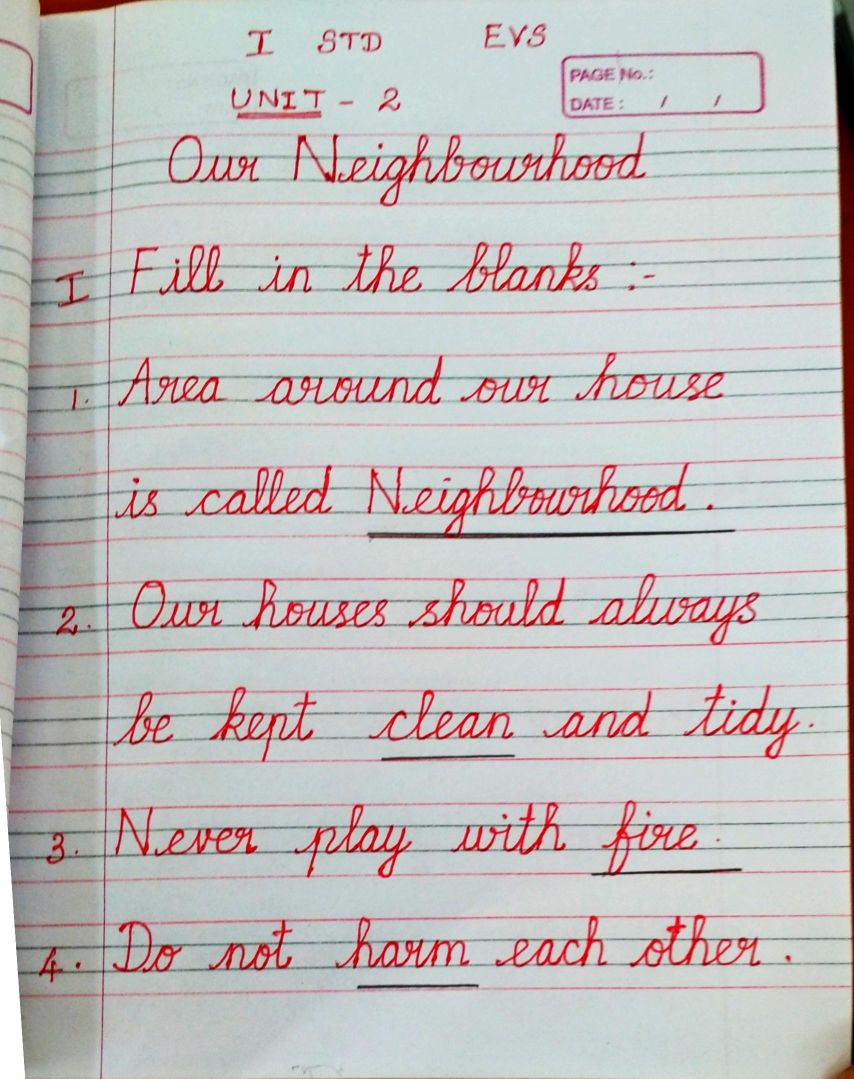 I STD EVS
PAGE No.:
UNIT - 2
DATE: / /
Our Neighbourhood
I Fill in the blanks :-
1. Area around our house
is called Neighbourhood.
2. Our houses should always
be kept clean and tidy.
3. Never play with fire.
4. Do not harm each other.